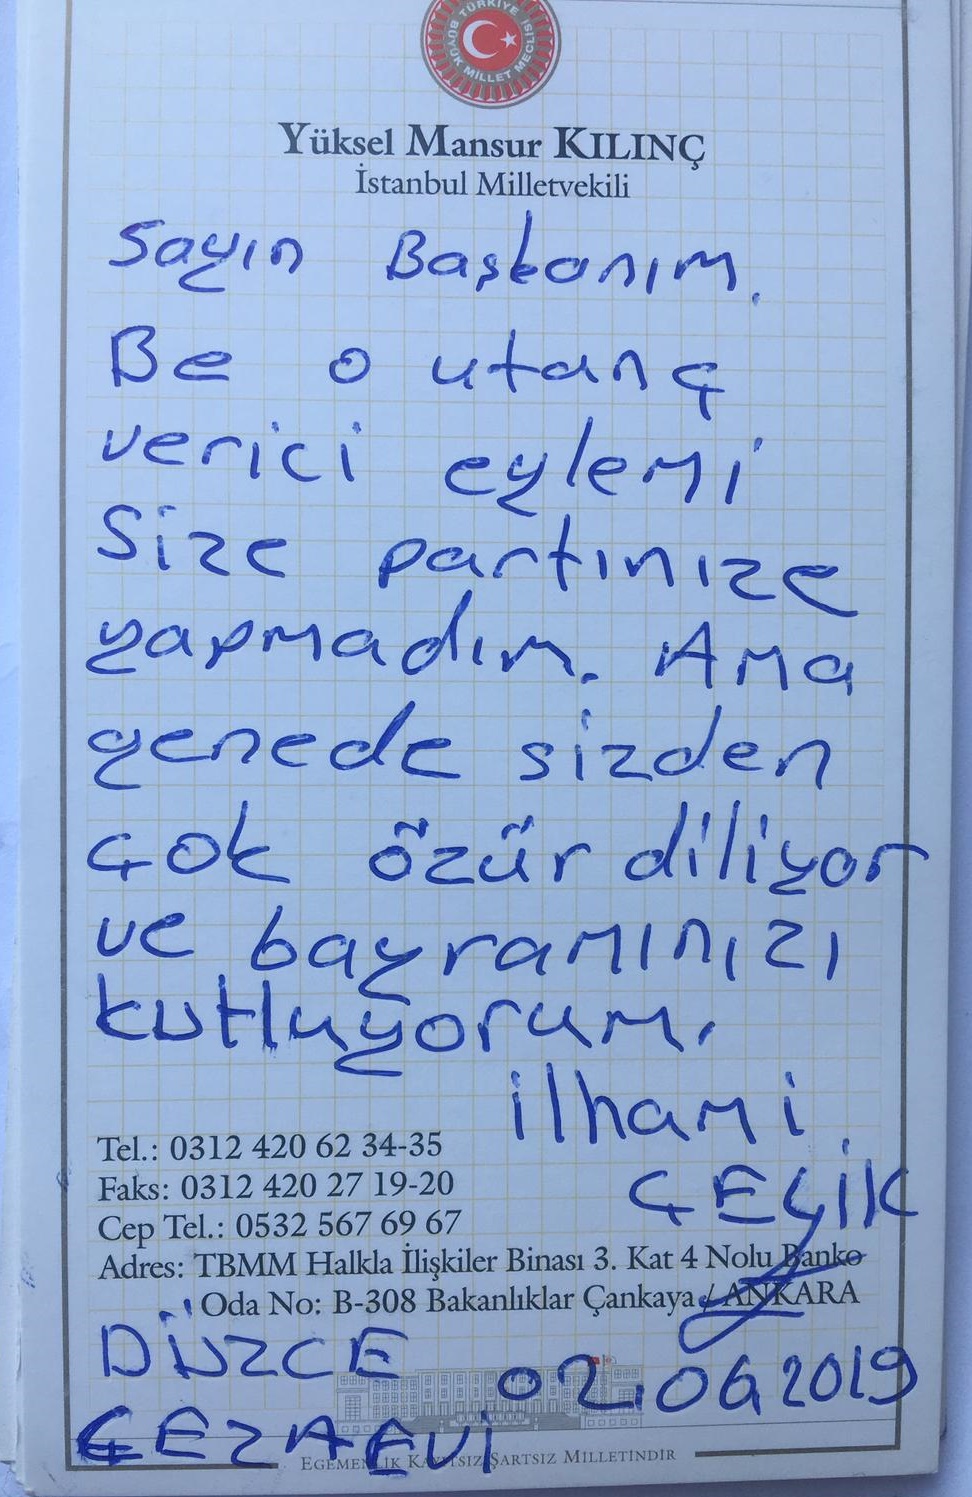 TÜRKİYE BÜYÜK MİLLET MECLİSİ
Yüksel Mansur KILINÇ
İstanbul Milletvekili
Sayın Başkanım.
Be o utanç
verici eylemi
Size partınıze
yapmadım. Ama
genede sizden
çok özür diliyor
ve bayramınızı
kutluyorum.
ilhami
ÇELİK
Tel.: 0312 420 62 34-35
Faks: 0312 420 27 19-20
Cep Tel.: 0532 567 69 67
Adres: TBMM Halkla İlişkiler Binası 3. Kat 4 Nolu Banko
Oda No: B-308 Bakanlıklar Çankaya / ANKARA
DÜZCE 02.06 2019
CEZAEVİ
EGEMENLİK KAYITSIZ ŞARTSIZ MİLLETİNDİR